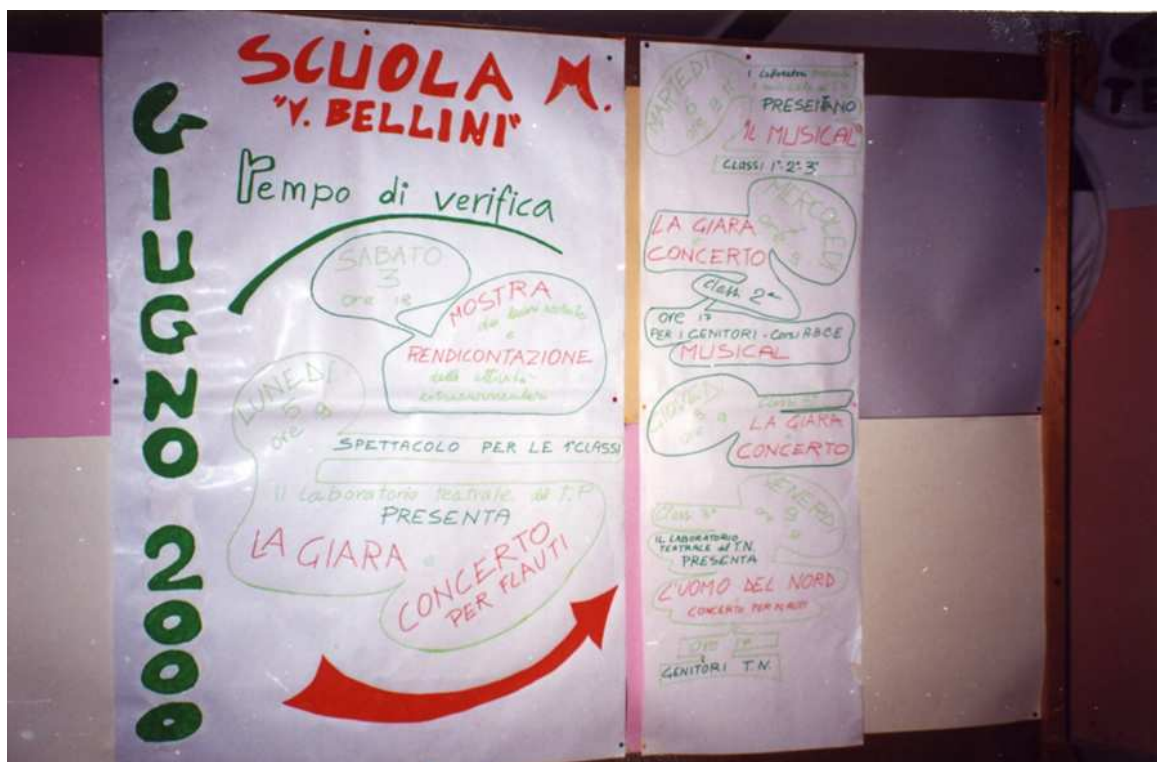 GIUGNO 2000
SCUOLA M.
"V. BELLINI"
Tempo di verifica
SABATO
3
ore 18
MOSTRA
e
RENDICONTAZIONE
delle attività
extracurriculari
LUNEDÌ
5
ore 9
SPETTACOLO PER LE 1ªCLASSI
Il Laboratorio teatrale del T.P
PRESENTA
LA GIARA
e
CONCERTO
PER FLAUTI
MARTEDÌ
6
ore
I Laboratori
PRESENTANO
"IL MUSICAL"
CLASSI 1ª-2ª-3ª
MERCOLEDÌ
LA GIARA
e
CONCERTO
classi 2ª
ore 17
PER I GENITORI - Corsi ABCE
MUSICAL
GIOVEDÌ
8
LA GIARA
e
CONCERTO
VENERDÌ
9
ore 9
Classi 3ª
IL LABORATORIO
TEATRALE del T.N.
PRESENTA
L'UOMO DEL NORD
CONCERTO PER FLAUTI
ore 17
GENITORI T.N.
TE